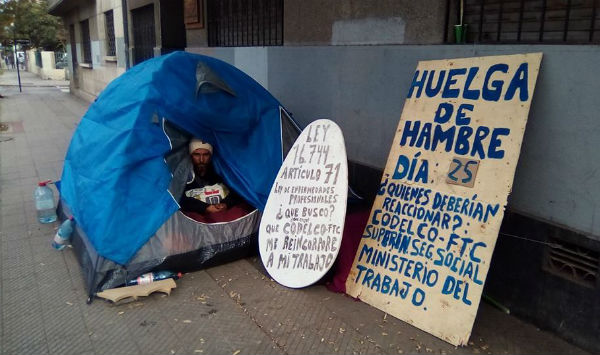 LEY
16.744
ARTÍCULO 71
LEY DE ENFERMEDADES
PROFESIONALES
¿QUE BUSCO?
QUE CODELCO-FTC
ME REINCORPORE
A MI TRABAJO
HUELGA
DE
HAMBRE
DÍA 25
¿QUIENES DEBERIAN
REACCIONAR?.
CODELCO-FTC
SUPERIN SEG SOCIAL
MINISTERIO DEL
TRABAJO.